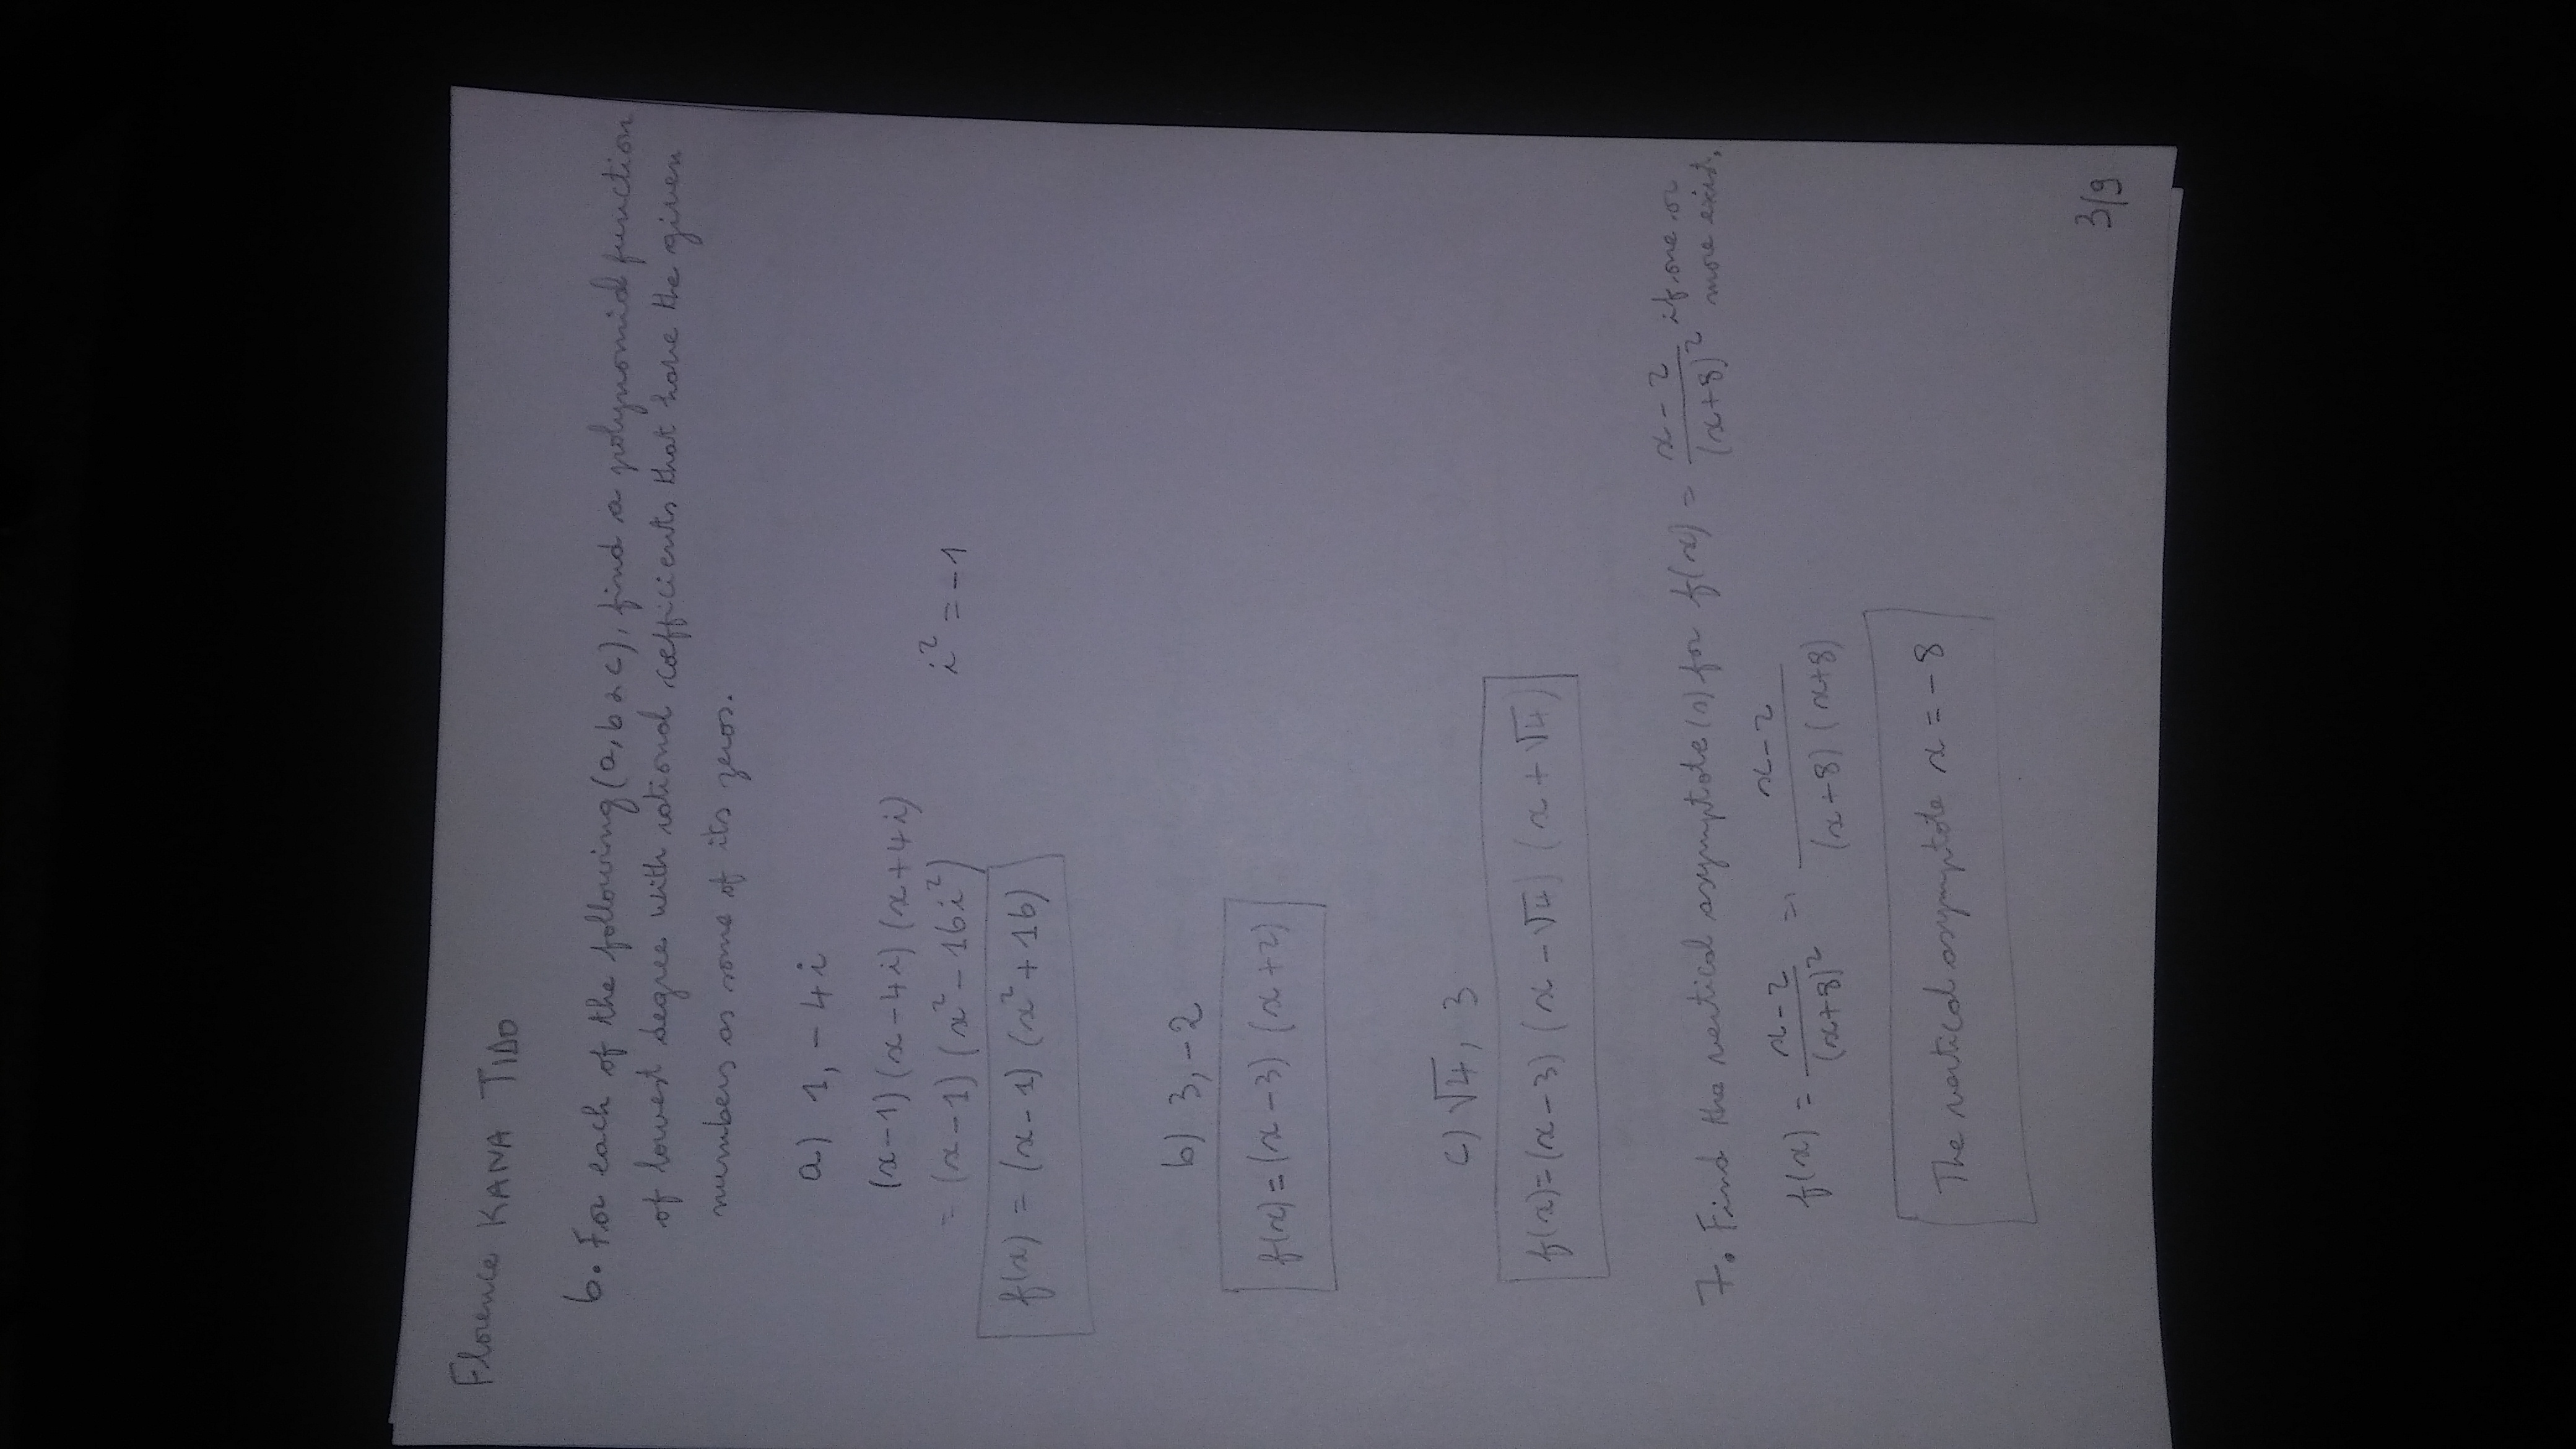 Florence KANA TIDO
6. For each of the following (a, b & c), find a polynomial function
of lowest degree with rational coefficients that have the given
numbers as some of its zeros.
a) 1, -4i
(x-1) (x-4i) (x+4i)
= (x-1) (x²-16i²) i² = -1
f(x) = (x-1) (x²+16)
b) 3, -2
f(x) = (x-3) (x+2)
c) √4, 3
f(x) = (x-3) (x-√4) (x+√4)
7. Find the vertical asymptote(s) for f(x) = x-2 / (x+8)² if one or
more exist.
f(x) = x-2 / (x+8)² => x-2 / (x+8) (x+8)
The vertical asymptote x = -8
3/9